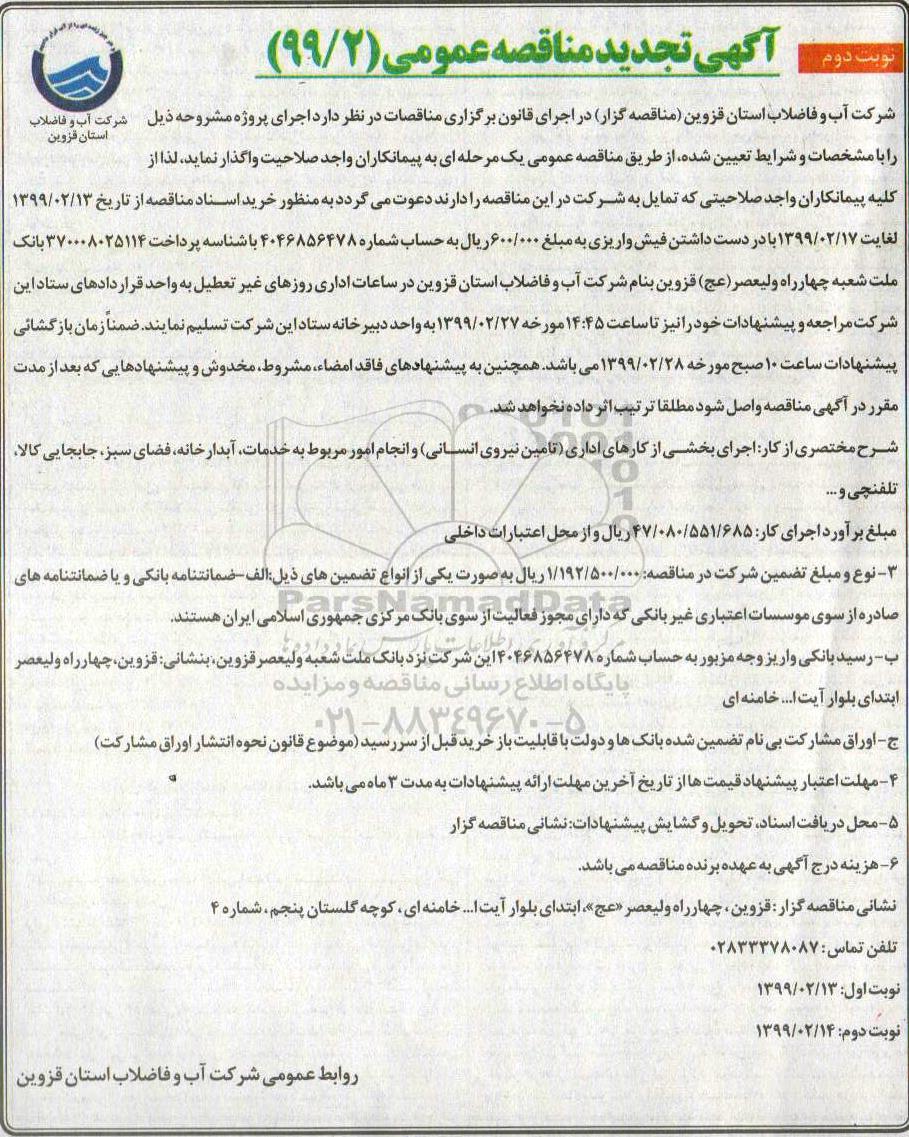 نوبت دوم
آگهی تجدید مناقصه عمومی (۹۹/۲)
شرکت آب و فاضلاب
استان قزوین
شرکت آب و فاضلاب استان قزوین (مناقصه گزار) در اجرای قانون برگزاری مناقصات در نظر دارد اجرای پروژه مشروحه ذیل
را با مشخصات و شرایط تعیین شده، از طریق مناقصه عمومی یک مرحله ای به پیمانکاران واجد صلاحیت واگذار نماید، لذا از
کلیه پیمانکاران واجد صلاحیتی که تمایل به شرکت در این مناقصه را دارند دعوت می گردد به منظور خرید اسناد مناقصه از تاریخ ۱۳۹۹/۰۲/۱۳
لغایت ۱۳۹۹/۰۲/۱۷ با در دست داشتن فیش واریزی به مبلغ ۶۰۰/۰۰۰ ریال به حساب شماره ۴۰۴۶۸۵۶۴۷۸ با شناسه پرداخت ۳۷۰۰۰۸۰۲۵۱۱۴ بانک
ملت شعبه چهارراه ولیعصر (عج) قزوین بنام شرکت آب و فاضلاب استان قزوین در ساعات اداری روزهای غیر تعطیل به واحد قراردادهای ستاد این
شرکت مراجعه و پیشنهادات خود را نیز تا ساعت ۱۴:۴۵ مورخه ۱۳۹۹/۰۲/۲۷ به واحد دبیرخانه ستاد این شرکت تسلیم نمایند. ضمناً زمان بازگشائی
پیشنهادات ساعت ۱۰ صبح مورخه ۱۳۹۹/۰۲/۲۸ می باشد. همچنین به پیشنهادهای فاقد امضاء، مشروط، مخدوش و پیشنهادهایی که بعد از مدت
مقرر در آگهی مناقصه واصل شود مطلقا ترتیب اثر داده نخواهد شد.
شرح مختصری از کار: اجرای بخشی از کارهای اداری (تامین نیروی انسانی) و انجام امور مربوط به خدمات، آبدارخانه، فضای سبز، جابجایی کالا،
تلفنچی و...
مبلغ برآورد اجرای کار: ۴۷/۰۸۰/۵۵۱/۶۸۵ ریال و از محل اعتبارات داخلی
۳- نوع و مبلغ تضمین شرکت در مناقصه: ۱/۱۹۲/۵۰۰/۰۰۰ ریال به صورت یکی از انواع تضمین های ذیل: الف-ضمانتنامه بانکی و یا ضمانتنامه های
صادره از سوی موسسات اعتباری غیر بانکی که دارای مجوز فعالیت از سوی بانک مرکزی جمهوری اسلامی ایران هستند.
ب- رسید بانکی واریز وجه مزبور به حساب شماره ۴۰۴۶۸۵۶۴۷۸ این شرکت نزد بانک ملت شعبه ولیعصر قزوین، بنشانی: قزوین، چهارراه ولیعصر
ابتدای بلوار آیت ا... خامنه ای
ج- اوراق مشارکت بی نام تضمین شده بانک ها و دولت با قابلیت باز خرید قبل از سررسید (موضوع قانون نحوه انتشار اوراق مشارکت)
۴- مهلت اعتبار پیشنهاد قیمت ها از تاریخ آخرین مهلت ارائه پیشنهادات به مدت ۳ ماه می باشد.
۵- محل دریافت اسناد، تحویل و گشایش پیشنهادات: نشانی مناقصه گزار
۶- هزینه درج آگهی به عهده برنده مناقصه می باشد.
نشانی مناقصه گزار: قزوین، چهارراه ولیعصر «عج»، ابتدای بلوار آیت ا... خامنه ای، کوچه گلستان پنجم، شماره ۴
تلفن تماس: ۰۲۸۳۳۳۷۸۰۸۷
نوبت اول: ۱۳۹۹/۰۲/۱۳
نوبت دوم: ۱۳۹۹/۰۲/۱۴
روابط عمومی شرکت آب و فاضلاب استان قزوین
ParsNamadData
پایگاه اطلاع رسانی مناقصه و مزایده
۰۲۱-۸۸۳۴۹۶۷۰-۵